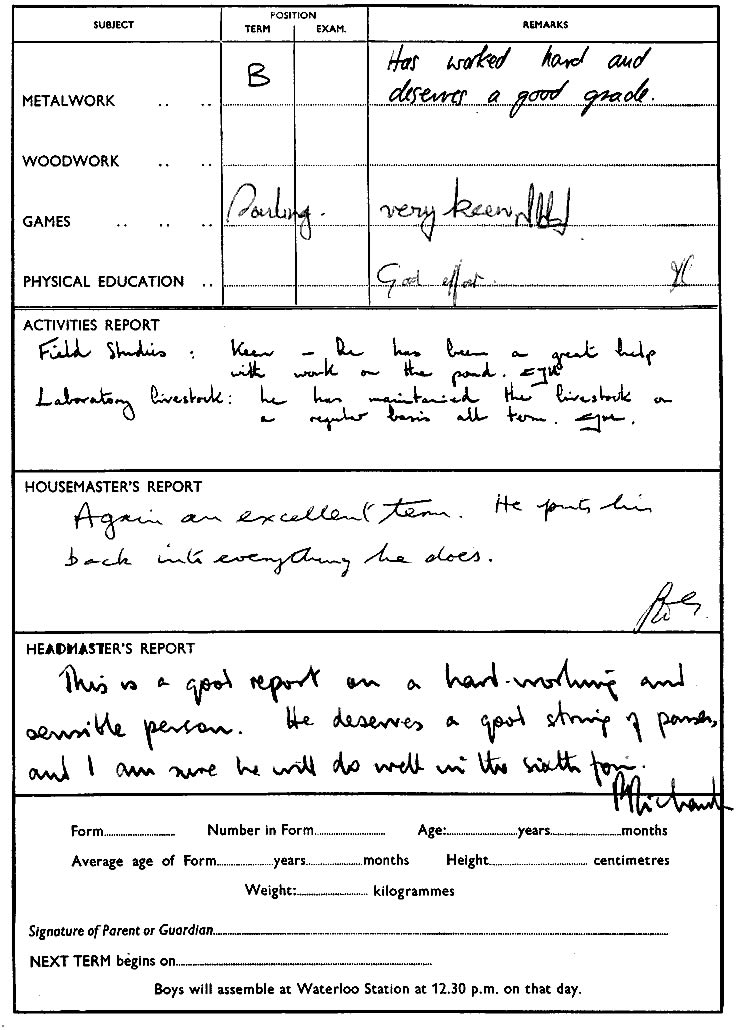 SUBJECT
POSITION
TERM EXAM.
REMARKS
METALWORK .. ..
B
Has worked hard and
deserves a good grade.
WOODWORK .. ..
GAMES .. .. ..
very keen
PHYSICAL EDUCATION ..
Good effort.
ACTIVITIES REPORT
Field Studies : Keen – he has been a great help
with work on the pond.
Laboratory livestock: he has maintained the livestock on
a regular basis all term.
HOUSEMASTER'S REPORT
Again an excellent term. He puts his
back into everything he does.
HEADMASTER'S REPORT
This is a good report on a hard-working and
sensible person. He deserves a good string of passes,
and I am sure he will do well in the sixth form.
Form Number in Form Age: years months
Average age of Form years months Height centimetres
Weight: kilogrammes
Signature of Parent or Guardian
NEXT TERM begins on
Boys will assemble at Waterloo Station at 12.30 p.m. on that day.